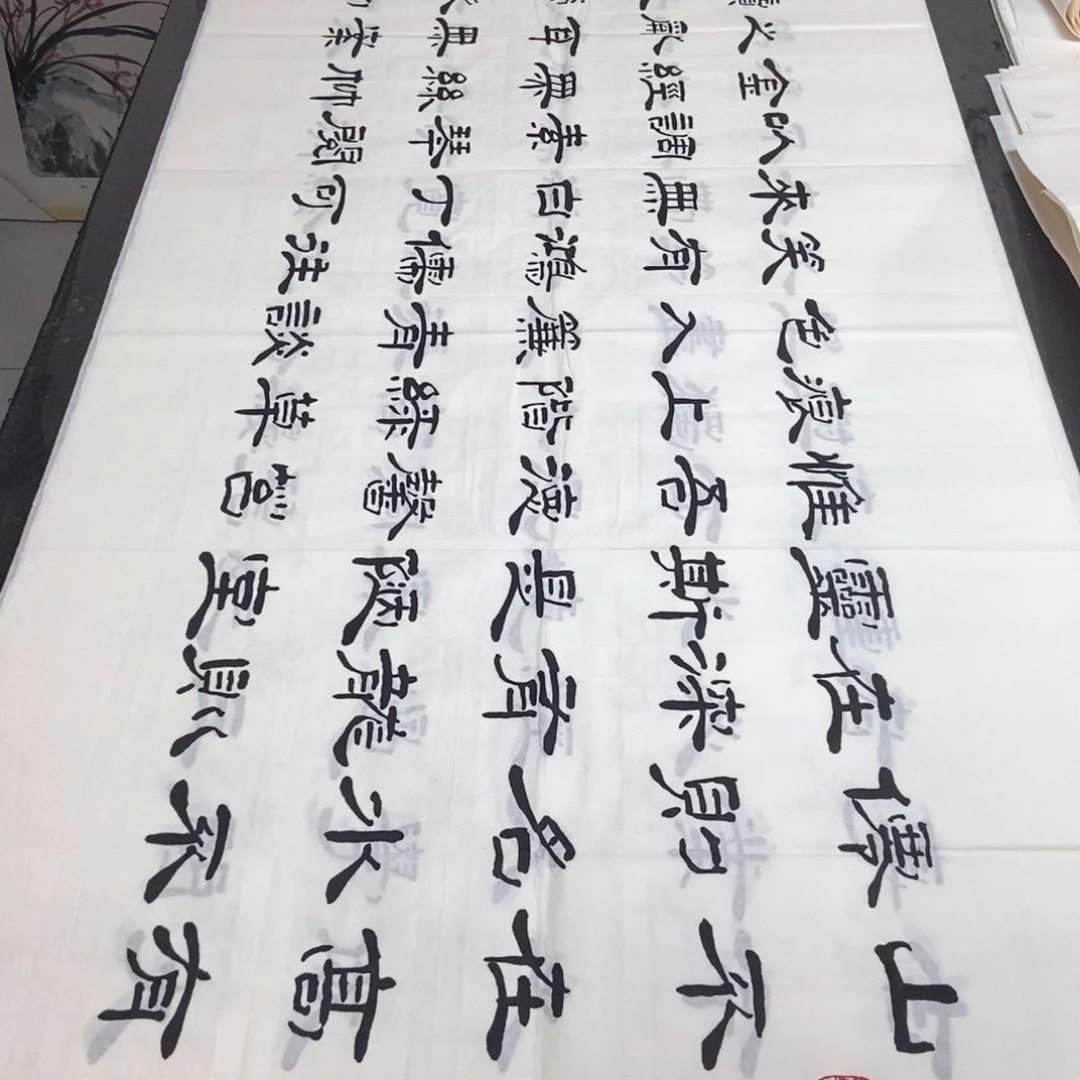 山不在高有
僊則名水不
在深有龍則
靈斯是陋室
惟吾德馨苔
痕上階綠草
色入簾青談
笑有鴻儒往
來無白丁可
以調素琴閱
金經無絲竹
之亂耳無案